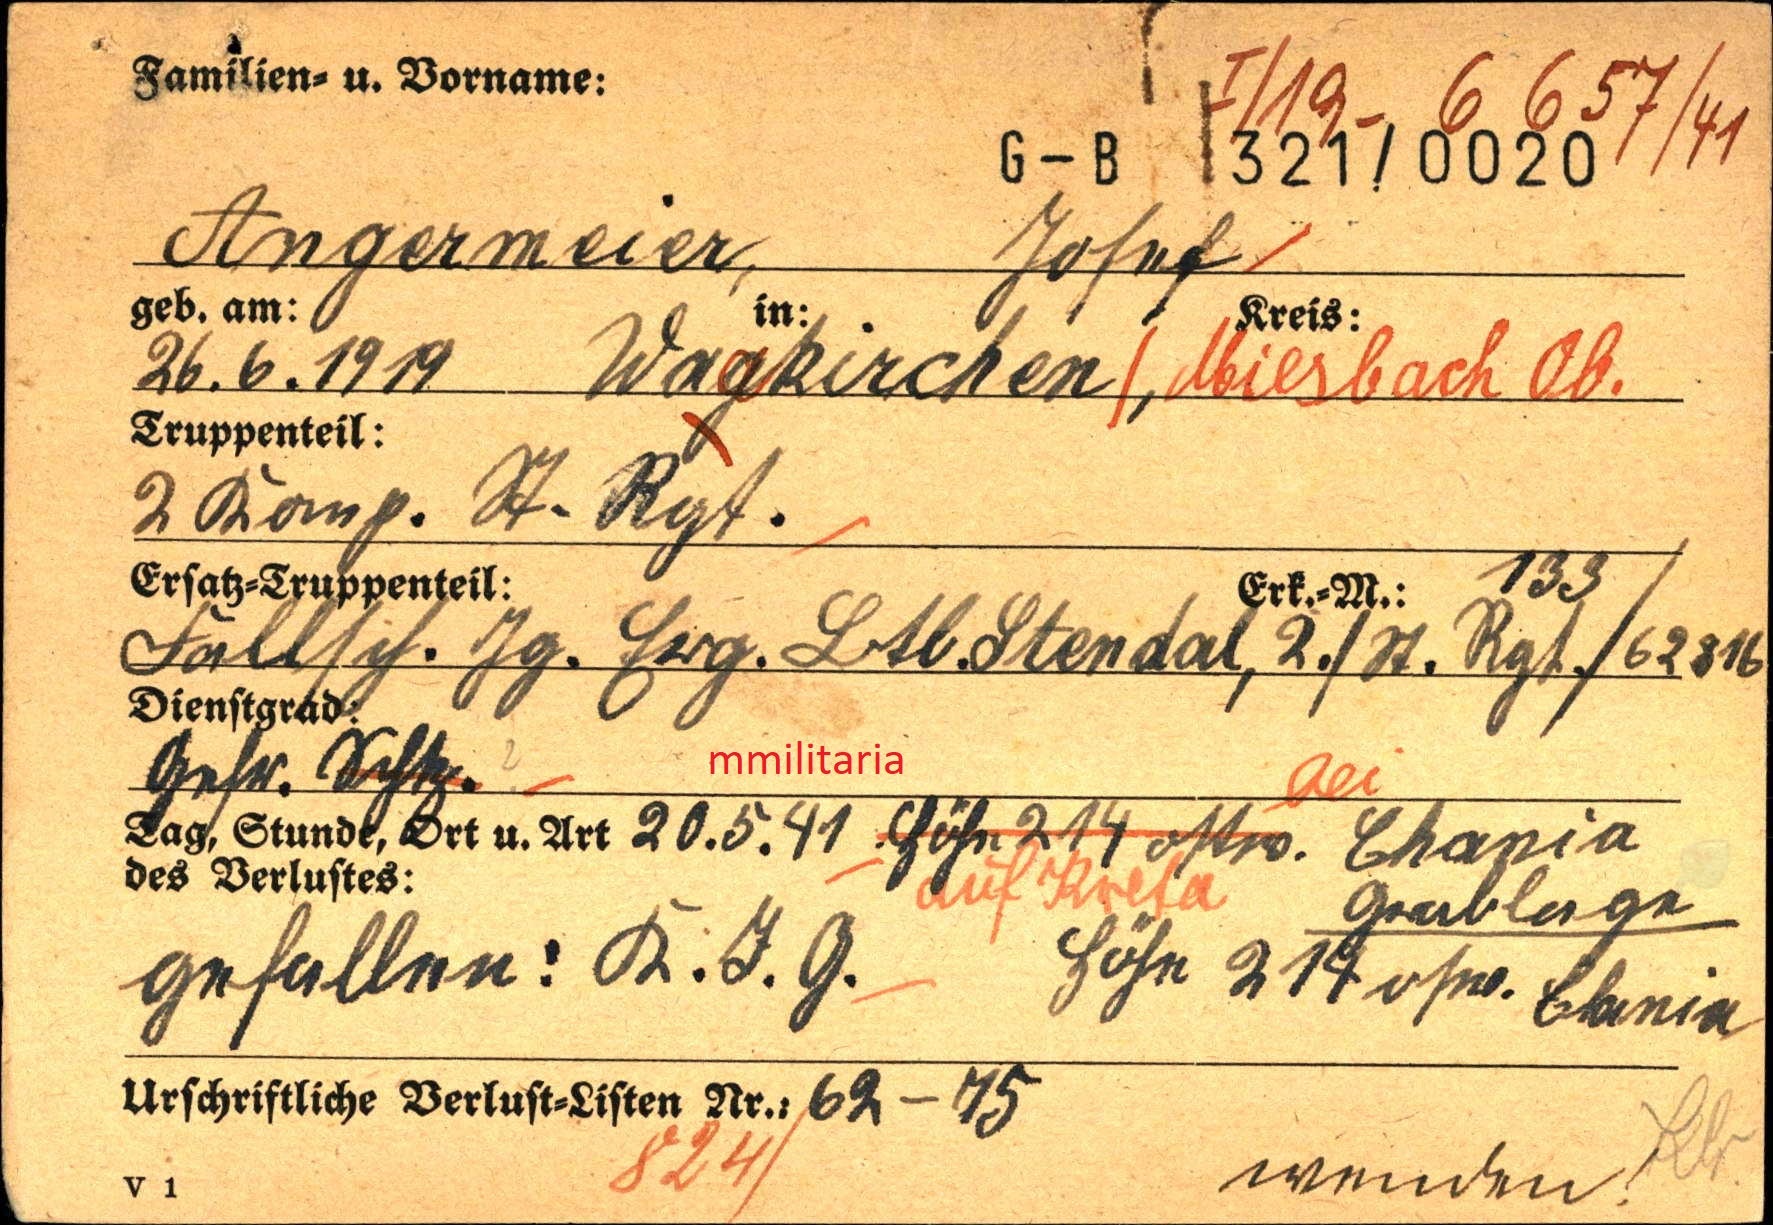 Familien- u. Vorname:
I/19- 6 657/41
G-B 321/0020
Angermeier, Josef
geb. am: in: Kreis:
26.6.1919 Wagkirchen, Miesbach Ob.
Truppenteil:
2 Komp. St. Rgt.
Ersatz-Truppenteil: Erk.-M.: 133
Fallsch. Jg. Erg. Btl. Stendal, 2./St. Rgt. / 62816
Dienstgrad:
Gefr. Schtz.
mmilitaria
bei
Tag, Stunde, Ort u. Art 20.5.41 Höhe 214 ostw. Chania
des Verlustes: auf Kreta Grablage
gefallen: K.I.G. Höhe 214 ostw. Chania
Urschriftliche Verlust-Listen Nr.: 62-75
824/
V 1 wenden!